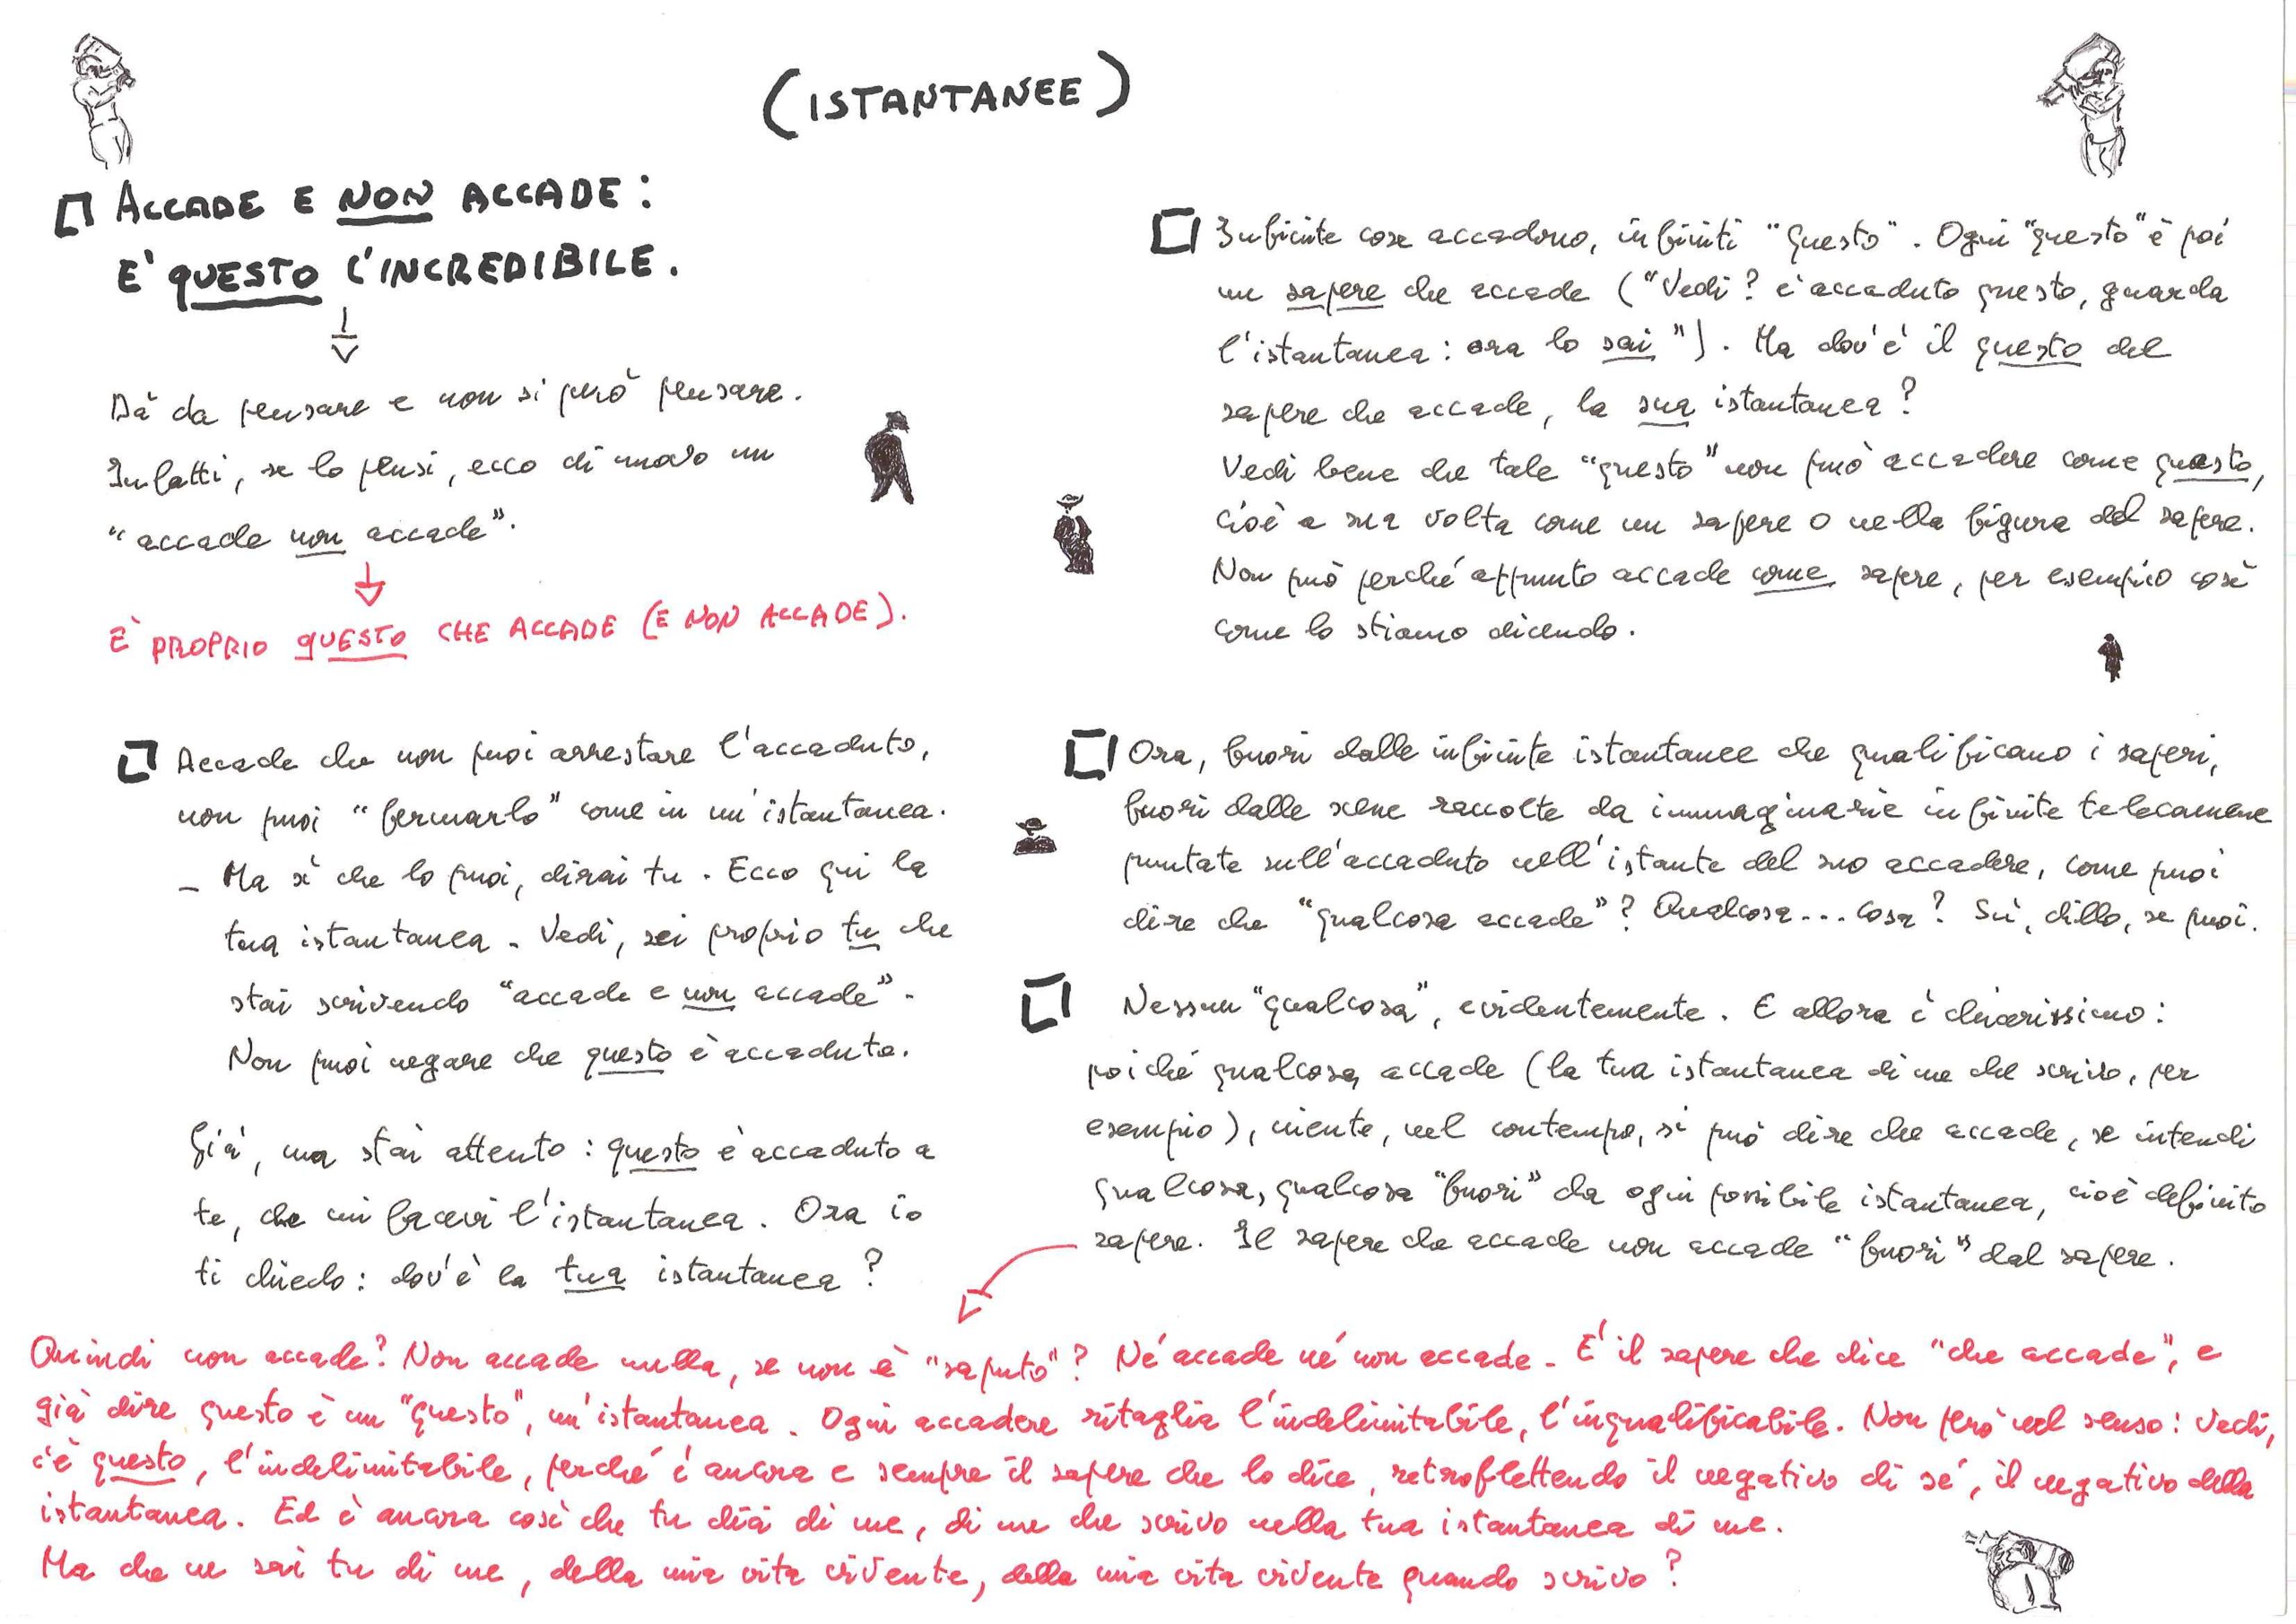 (ISTANTANEE)
ACCADE E NON ACCADE:
E' QUESTO L'INCREDIBILE.
Dà da pensare e non si può pensare.
Infatti, se lo pensi, ecco di nuovo un
"accade non accade".
È PROPRIO QUESTO CHE ACCADE (E NON ACCADE).
Accade che non puoi arrestare l'accaduto,
non puoi "fermarlo" come in un'istantanea.
- Ma sì che lo puoi, dirai tu. Ecco qui la
tua istantanea. Vedi, sei proprio tu che
stai scrivendo "accade e non accade".
Non puoi negare che questo è accaduto.
Già, ma stai attento: questo è accaduto a
te, che mi facevi l'istantanea. Ora io
ti chiedo: dov'è la tua istantanea?
Infinite cose accadono, infiniti "questo". Ogni "questo" è poi
un sapere che accade ("Vedi? è accaduto questo, guarda
l'istantanea: ora lo sai"). Ma dov'è il questo del
sapere che accade, la sua istantanea?
Vedi bene che tale "questo" non può accadere come questo,
cioè a sua volta come un sapere o nella figura del sapere.
Non può perché appunto accade come sapere, per esempio così
come lo stiamo dicendo.
Ora, fuori dalle infinite istantanee che qualificano i saperi,
fuori dalle scene raccolte da immaginarie infinite telecamere
puntate sull'accaduto nell'istante del suo accadere, come puoi
dire che "qualcosa accade"? Qualcosa... cosa? Su, dillo, se puoi.
Nessun "qualcosa", evidentemente. E allora è chiarissimo:
poiché qualcosa accade (la tua istantanea di me che scrivo, per
esempio), niente, nel contempo, si può dire che accade, se intendi
qualcosa, qualcosa "fuori" da ogni possibile istantanea, cioè definito
sapere. Il sapere che accade non accade "fuori" dal sapere.
Quindi non accade? Non accade nulla, se non è "saputo"? Né accade né non accade. E' il sapere che dice "che accade", e
già dire questo è un "questo", un'istantanea. Ogni accadere ritaglia l'indelimitabile, l'inqualificabile. Non però nel senso: vedi,
c'è questo, l'indelimitabile, perché è ancora e sempre il sapere che lo dice, retroflettendo il negativo di sé, il negativo della
istantanea. Ed è ancora così che tu dici di me, di me che scrivo nella tua istantanea di me.
Ma che ne sai tu di me, della mia vita vivente, della mia vita vivente quando scrivo?